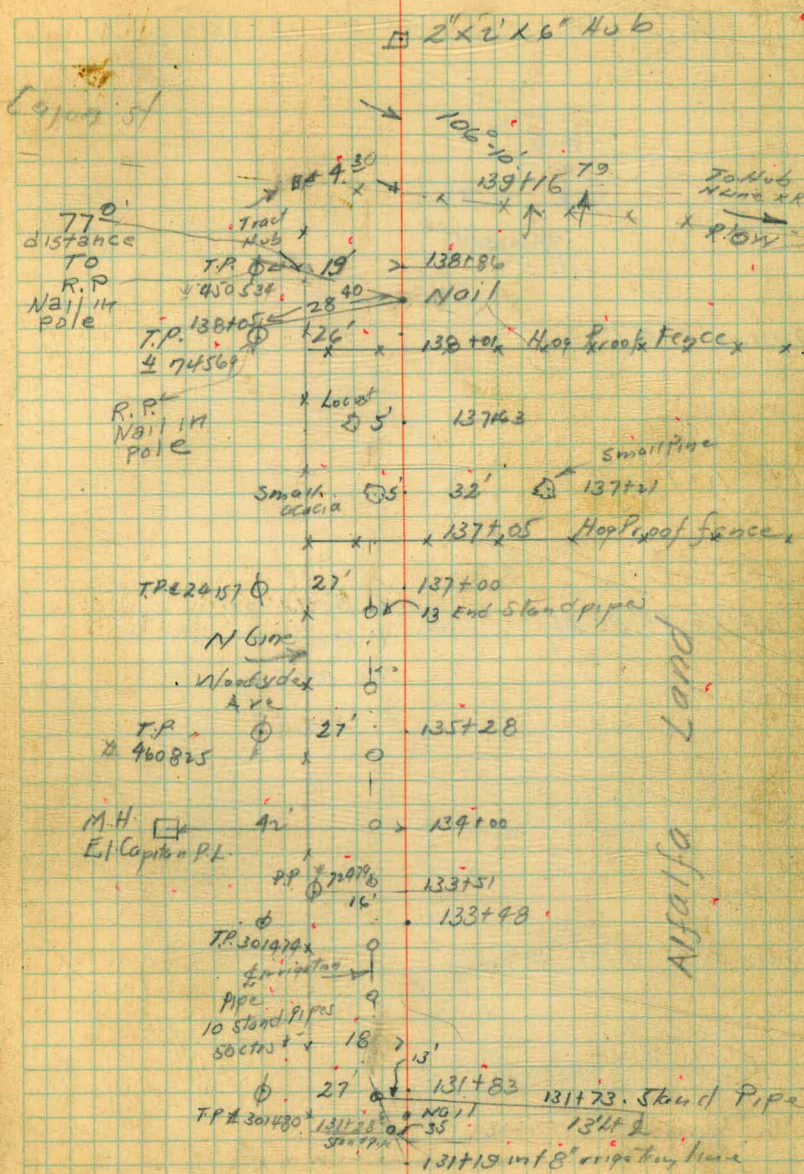 2"x2'x6" Hub
106°-10'
4.30
139+16
79
To Hub
Plow
77.0'
distance
To
R.P
Nail in
pole
Tract
Hub
T.P.
19'
138+86
450534
28 40
Nail
T.P. 138+05
26'
138+01 Hog Proof Fence
# 74569
R.P.
Nail in
pole
Locust
5'
137+63
Small Pine
Small
acacia
5'
32'
137+21
137+05 Hog Proof fence
T.P.# 24157
27'
137+00
13 End Standpipe
N Line
Woodside
Ave
T.P.
# 460825
27'
135+28
M.H.
El Capitan P.L.
42'
134+00
P.P.
16'
133+51
133+48
T.P. 301474
Irrigation
Pipe
10 Stand Pipes
50 ctrs ±
18
13'
27'
131+83
131+73. Stand Pipe
T.P.# 301480
131+28
Stand Pipe
Nail
35
131+19 int 8" irrigation line
Alfalfa Land